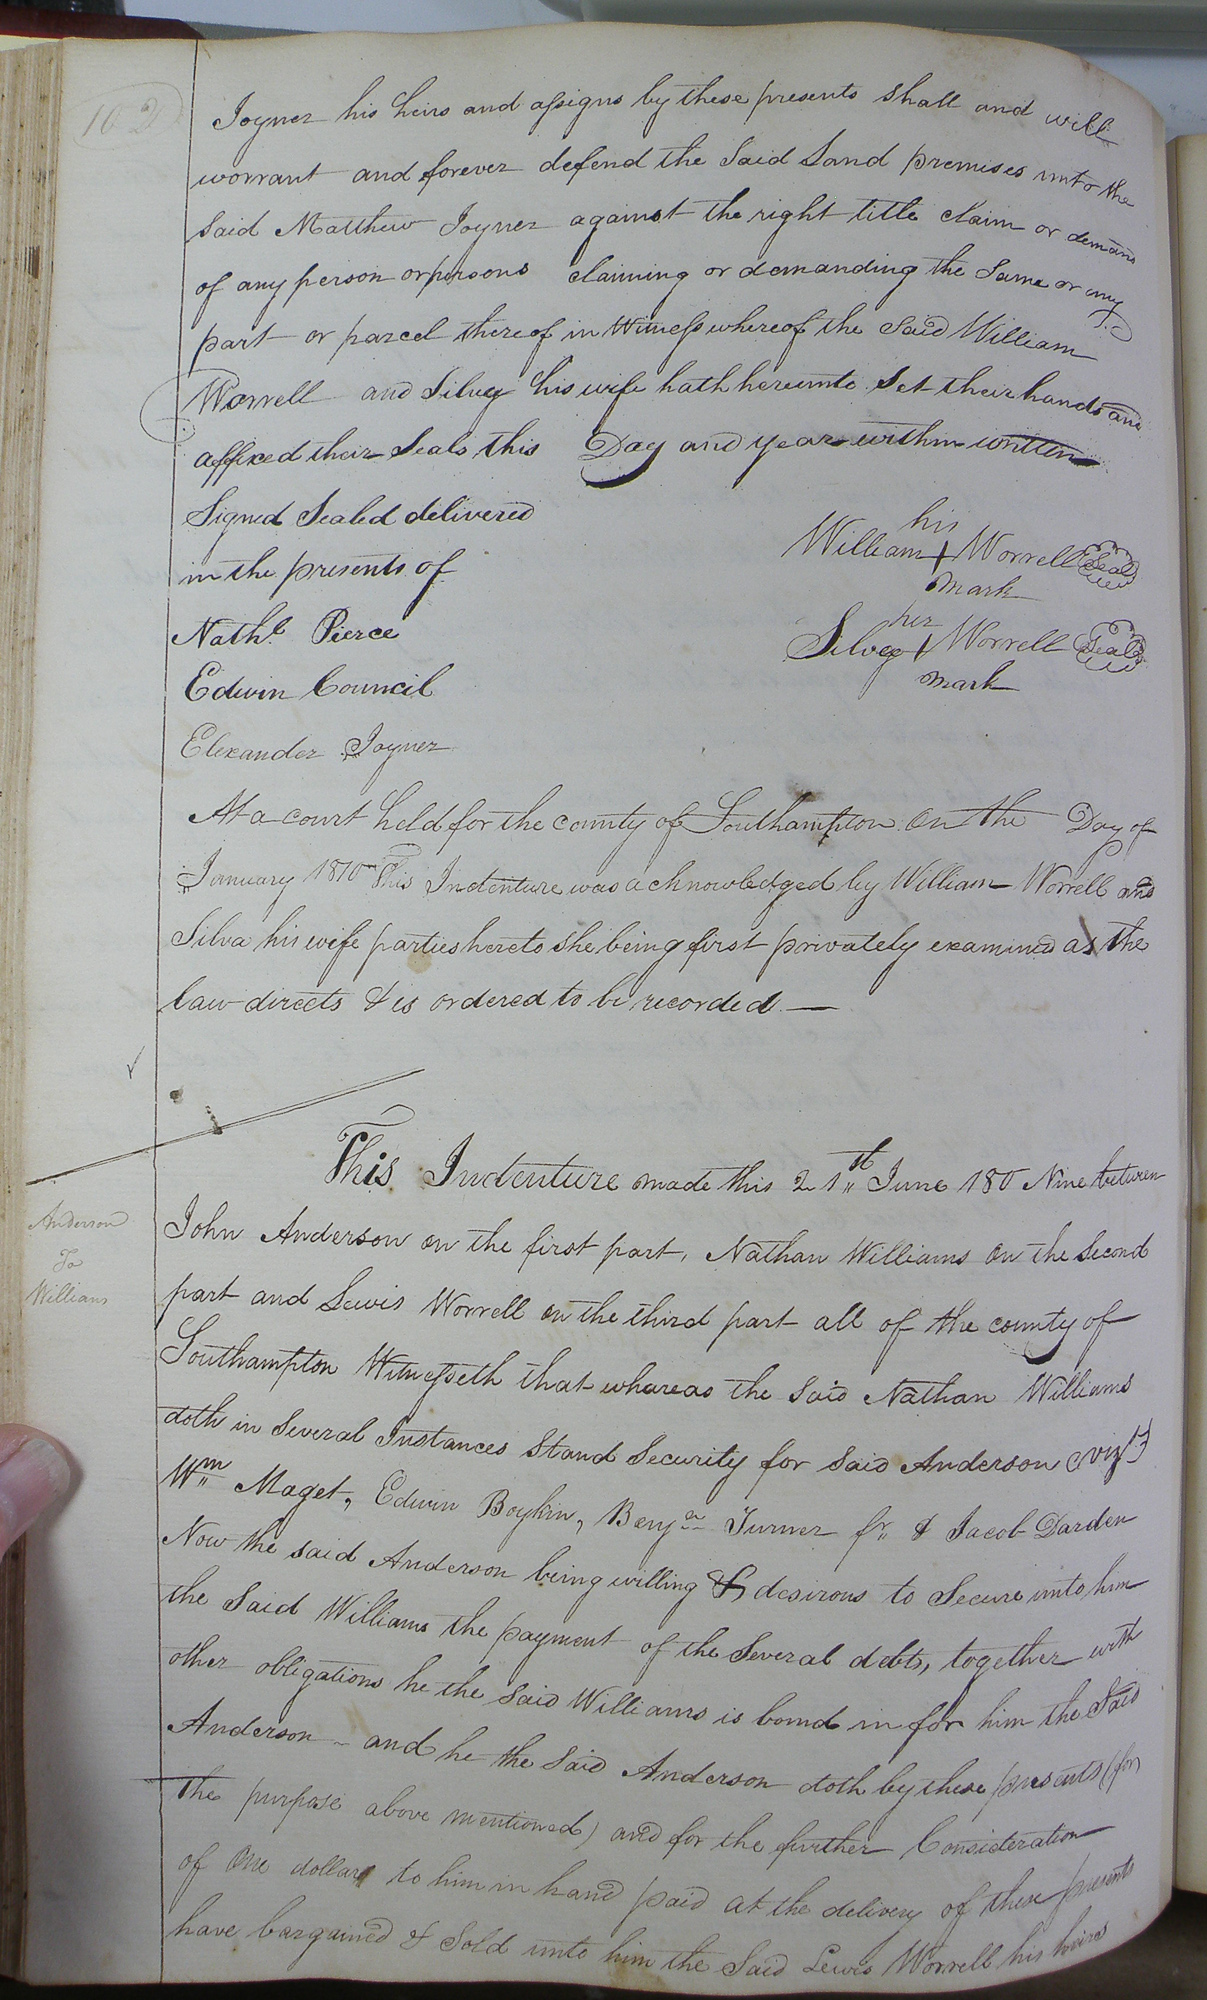 102
Joyner his heirs and assigns by these presents shall and will
worrant and forever defend the Said Land premises unto the
Said Matthew Joyner against the right title claim or demand
of any person or persons claiming or demanding the Same or any
part or parcel thereof in Witness whereof the Said William
Worrell and Silvey his wife hath hereunto Set their hands and
affixed their Seals this Day and year within written
Signed Sealed delivered
in the presents of
his
William + Worrell Seal
mark
Nathl. Pierce
her
Silvey + Worrell Seal
mark
Edwin Council
Elexander Joyner
At a court held for the county of Southampton On the Day of
January 1810 This Indenture was acknowledged by William Worrell and
Silva his wife parties hereto she being first privately examined as the
law directs & is ordered to be recorded —
This Indenture made this 21st June 180 Nine between
Anderson
To
Williams
John Anderson on the first part, Nathan Williams On the Second
part and Lewis Worrell on the third part all of the county of
Southampton Witnesseth that whereas the Said Nathan Williams
doth in Several Instances Stand Security for Said Anderson (vizt)
Wm Maget, Edwin Boykin, Benjn Turner Jr. & Jacob Darden
Now the said Anderson being willing & desirous to Secure unto him
the Said Williams the payment of the Several debts, together with
other obligations he the Said Williams is bound in for him the Said
Anderson – and he the Said Anderson doth by these presents (for
the purpose above mentioned) and for the further Consideration
of One dollar to him in hand paid at the delivery of these presents
have bargained & Sold unto him the Said Lewis Worrell his heirs